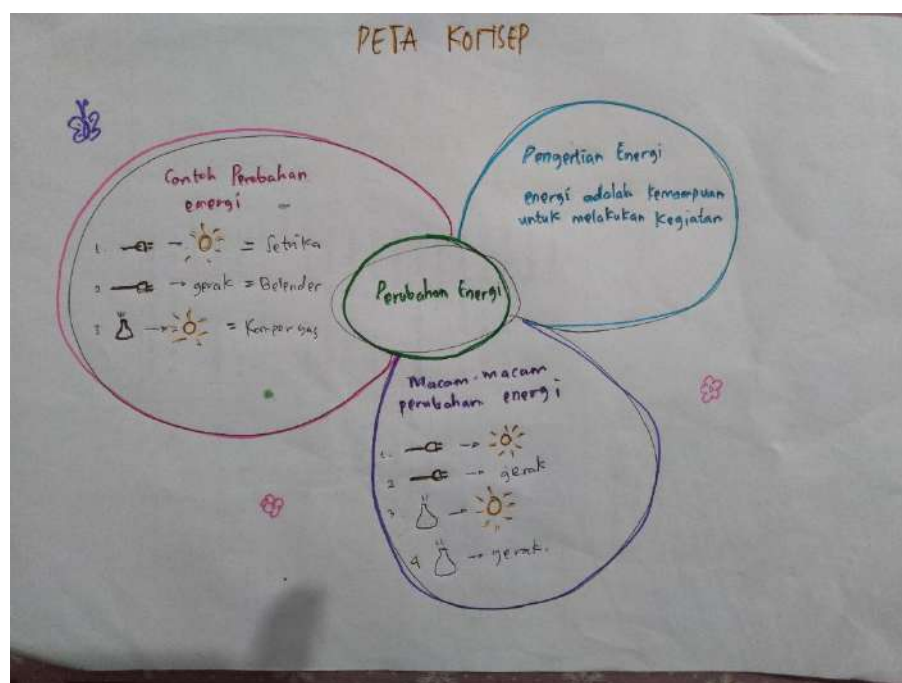 PETA KONSEP
Contoh Perubahan
energi
1. → = Setrika
2 → gerak = Belender
3 → = Kompor gas
Pengertian Energi
energi adalah kemampuan
untuk melakukan kegiatan
Perubahan Energi
Macam-macam
perubahan energi
1. →
2 → gerak
3 →
4 → gerak.